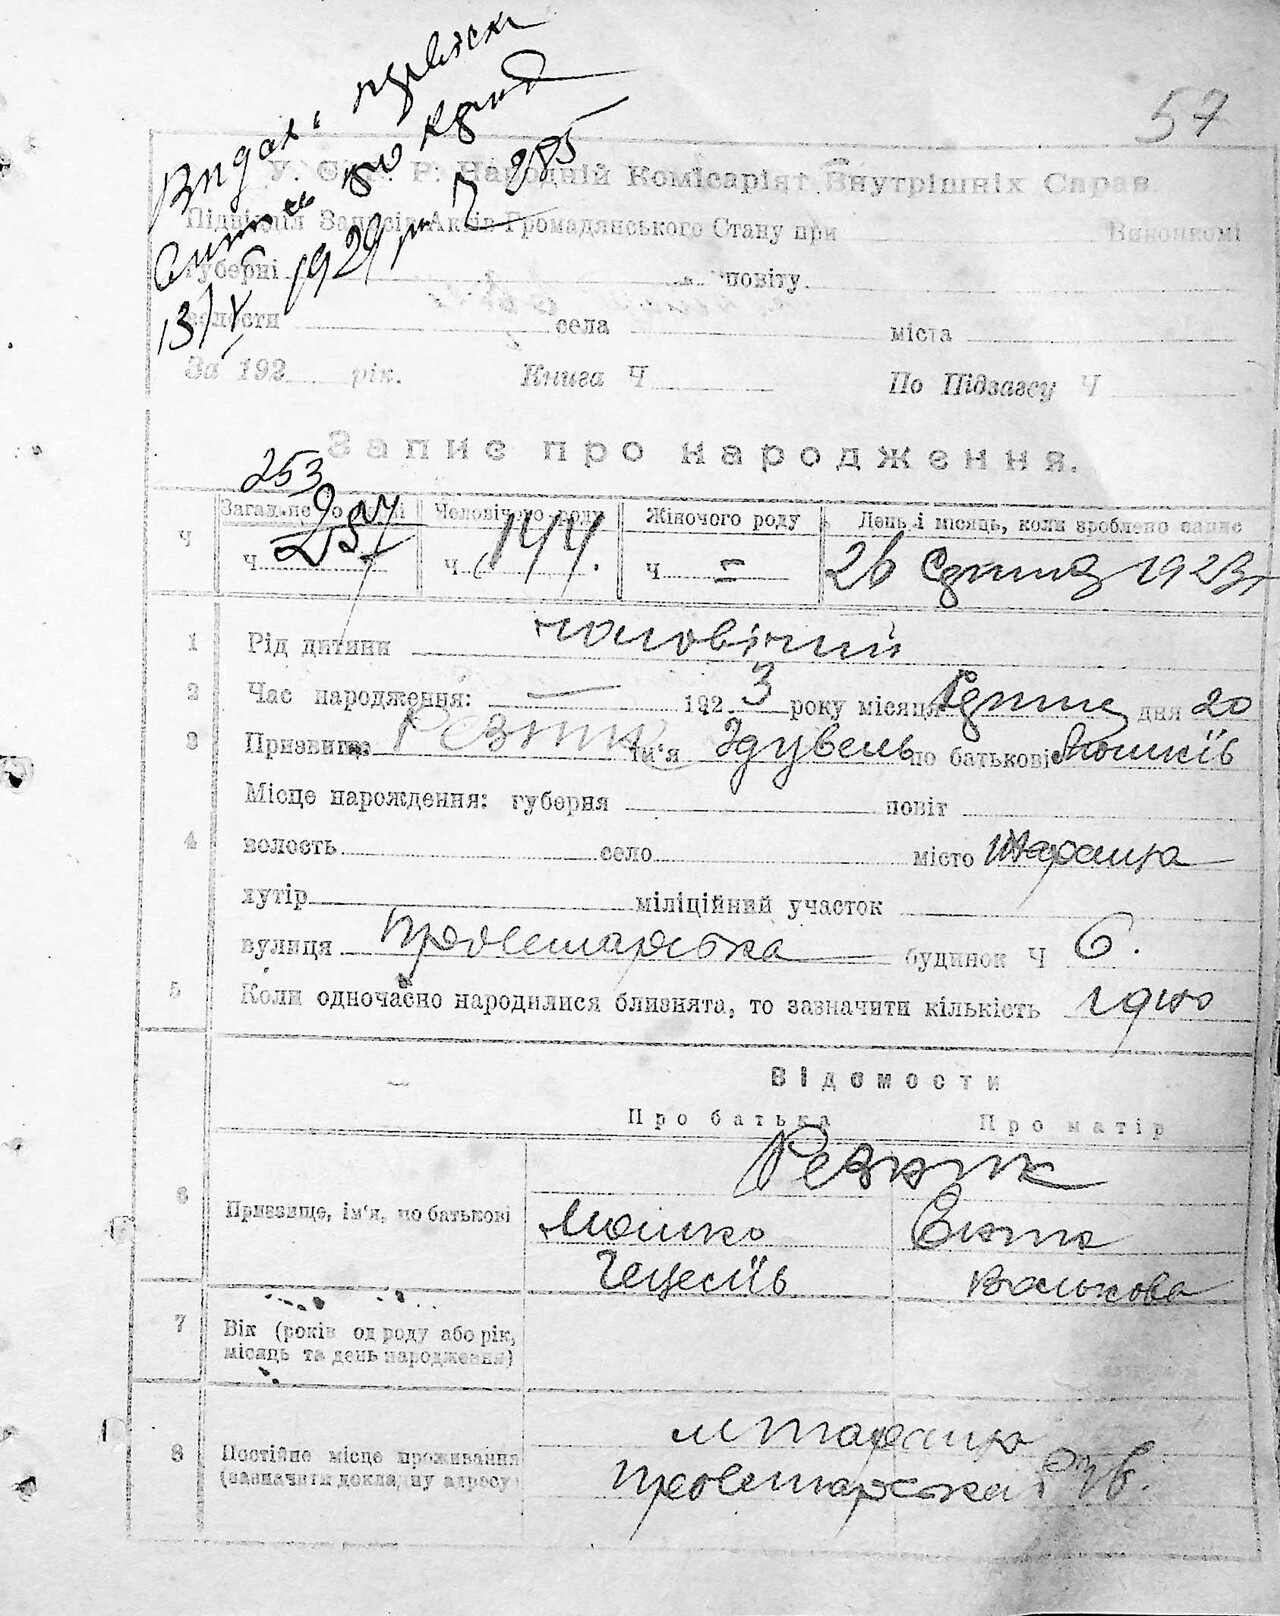 57
Видана
1929 р. 285
У. С. Р. Р. Народній Комісаріят Внутрішніх Справ.
Підвідділ Записів Актів Громадянського Стану при Виконкомі
губерні повіту
волости села міста
За 192 рік. Книга Ч По Підзагсу Ч
Запис про народження.
253
Ч Загальне по книзі Человічого роду Жіночого роду День і місяць, коли зроблено запис
ч 257 ч 144. ч = 26 Серпня 1923 г
1 Рід дитини чоловічий
2 Час народження: — 1923 року місяця Серпня дня 20
3 Призвище Резник ім'я Здувель по батькові Мошкїв
Місце народження: губерня повіт
4 волость село місто Тараща
хутір міліційний участок
вулиця Пролетарська будинок Ч 6.
5 Коли одночасно народилися близнята, то зазначити кількість одно
Відомости
Про батька Про матір
Резник
6 Призвище, ім'я, по батькові Мошко
Волькова
7 Вік (років од роду або рік,
місяць та день народження)
м Тараща
8 Постійне місце проживання
(зазначити докладну адресу) Пролетарська